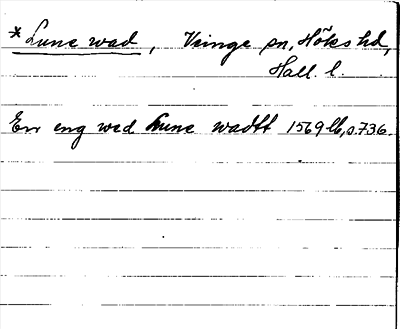 *Lune wad, Veinge sn, Höks hd,
Hall. l.
En eng wed Lune wadtt 1569 lb, s. 736.